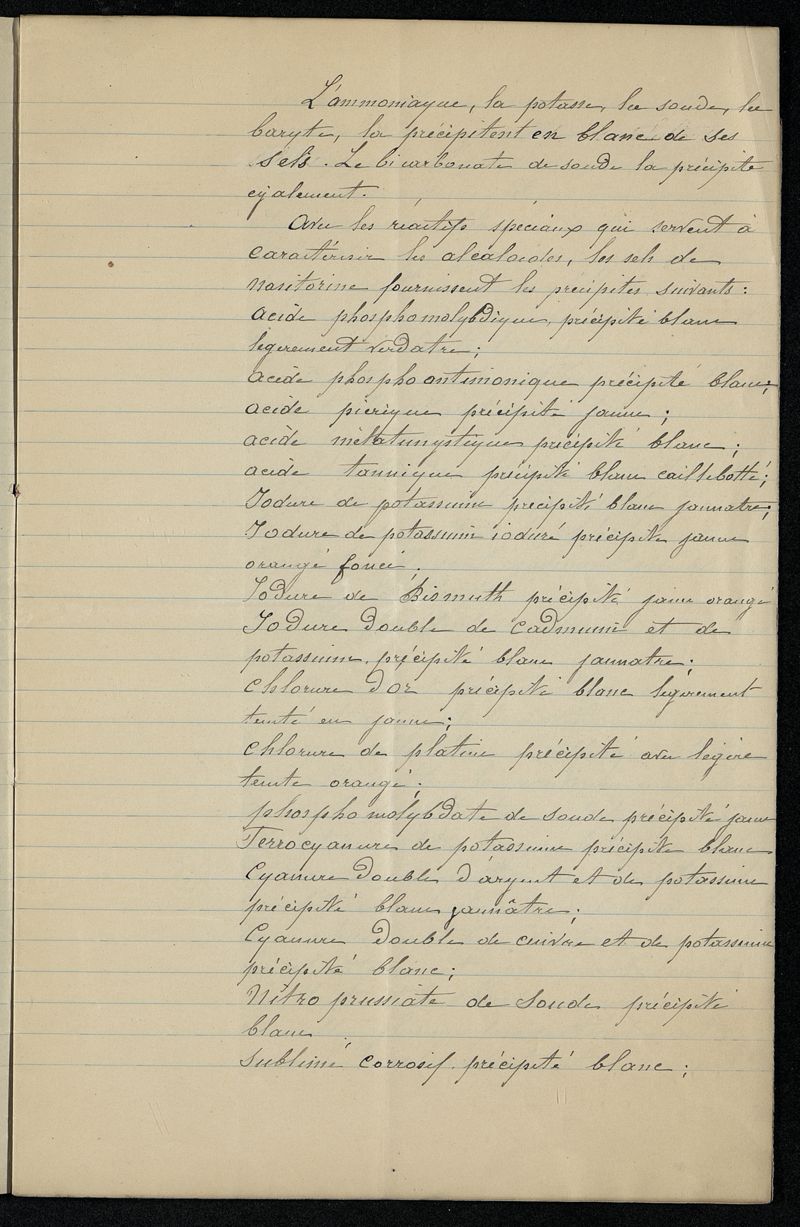 L'ammoniaque, la potasse, la soude, la
baryte, la précipitent en blanc de ses
sels. Le bicarbonate de soude la précipite
également.
Avec les réactifs spéciaux qui servent à
caractériser les alcaloïdes, les sels de
nasitorine fournissent les précipités suivants :
acide phosphomolybdique, précipité blanc
légèrement verdatre ;
acide phosphoantimonique précipité blanc ;
acide picrique précipité jaune ;
acide métatungstique précipité blanc ;
acide tannique précipité blanc caillebotté ;
Iodure de potassium précipité blanc jaunatre ;
Iodure de potassium ioduré précipité jaune
orangé foncé ;
Iodure de Bismuth précipité jaune orangé
Iodure double de cadmium et de
potassium, précipité blanc jaunatre ;
chlorure d'or précipité blanc légèrement
teinté en jaune ;
chlorure de platine précipité avec légère
teinte orangé ;
phosphomolybdate de soude précipité jaune
Ferrocyanure de potassium précipité blanc
Cyanure double d'argent et de potassium
précipité blanc jaunâtre ;
Cyanure double de cuivre et de potassium
précipité blanc ;
Nitro prussiate de soude précipité
blanc ;
Sublimé corrosif précipité blanc ;